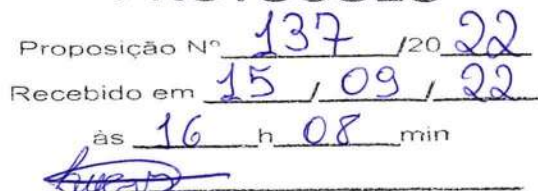 Proposição Nº 137 /20 22
Recebido em 15 / 09 / 22
às 16 h 08 min